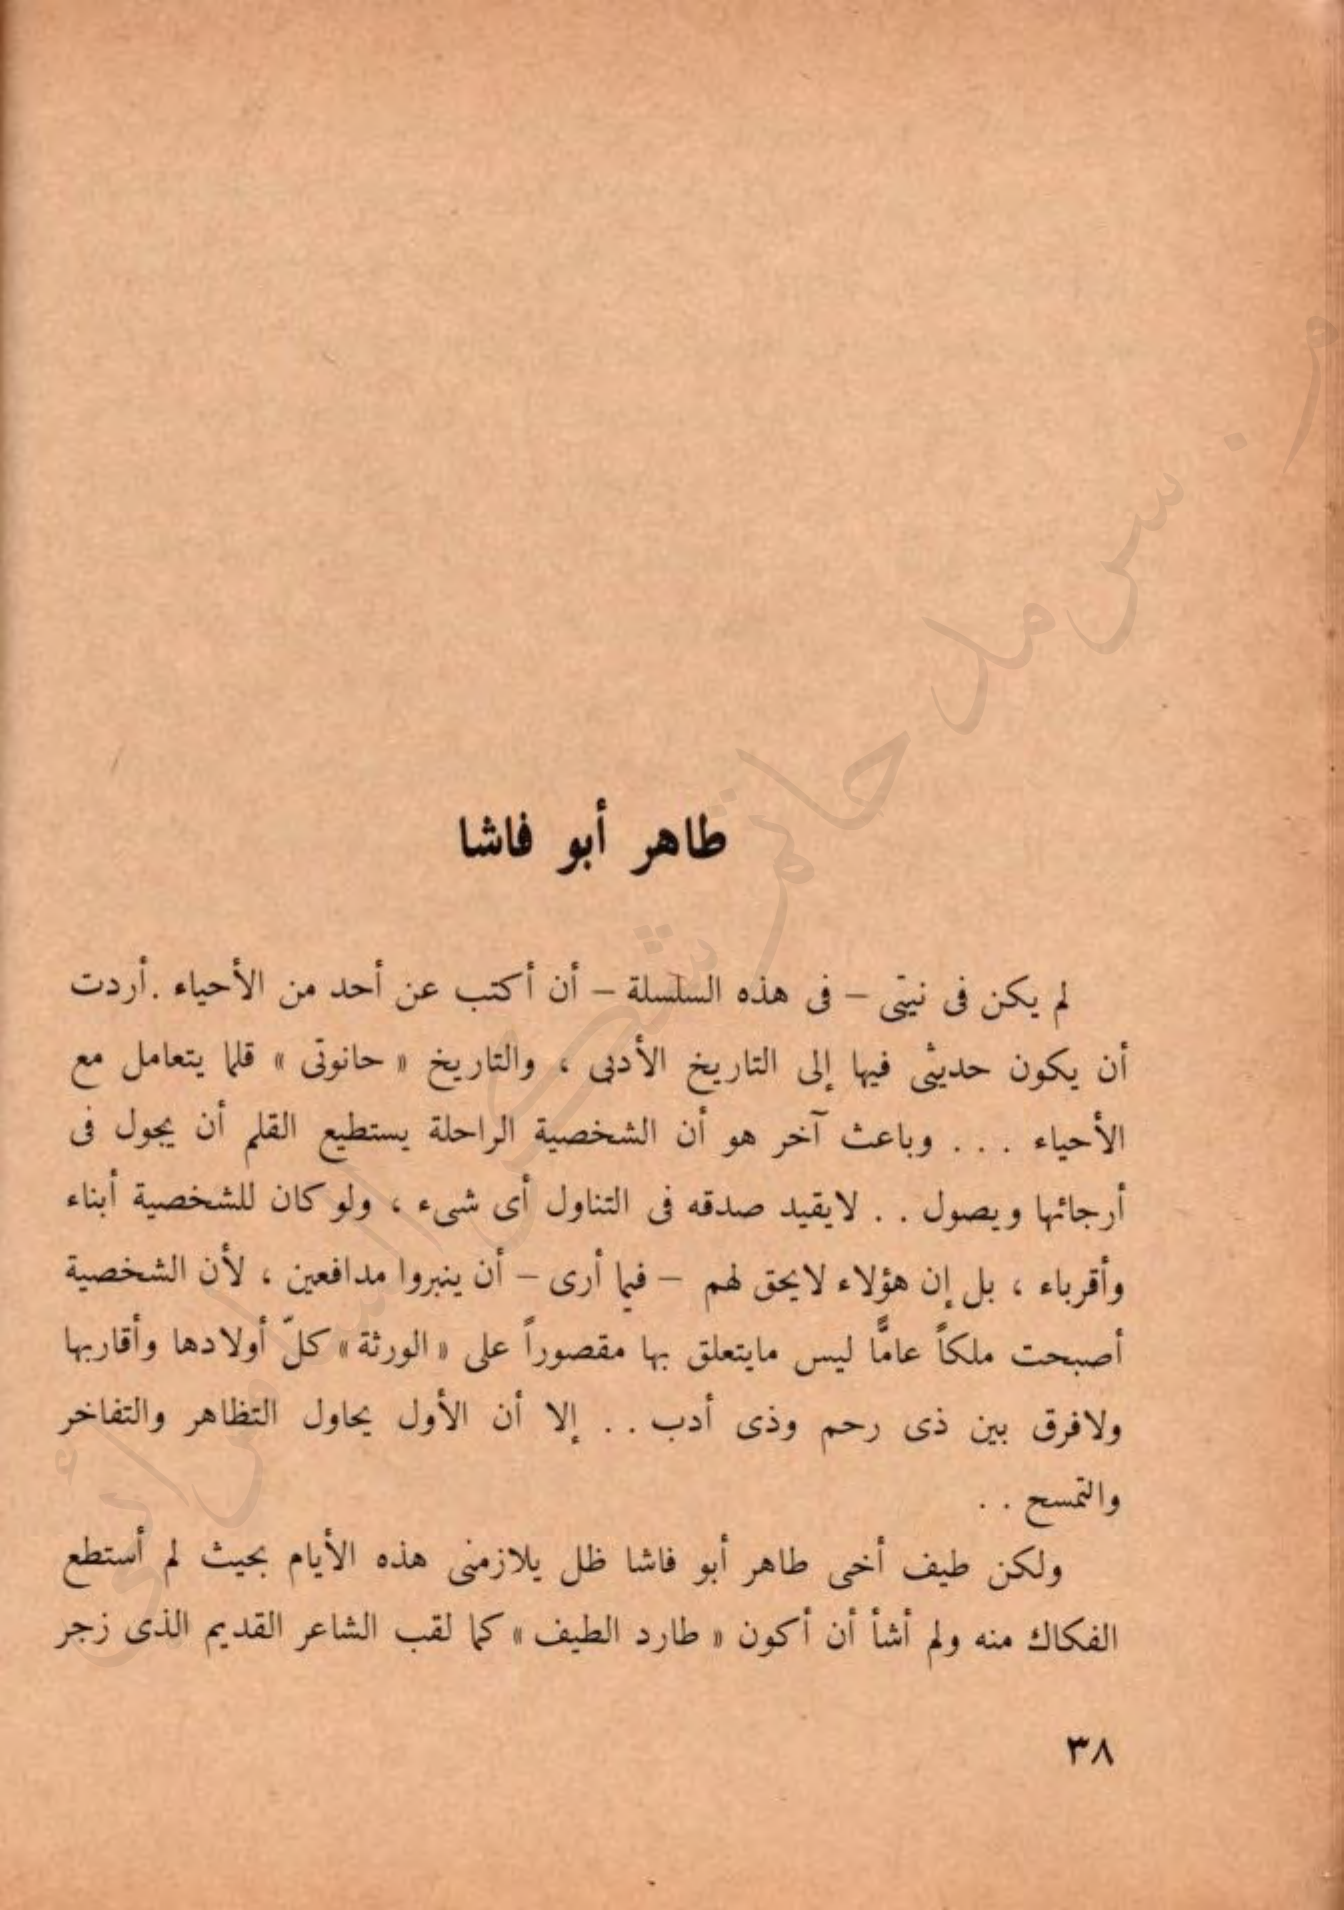 طاهر أبو فاشا
لم يكن فى نيتى – فى هذه السلسلة – أن أكتب عن أحد من الأحياء . أردت
أن يكون حديثى فيها إلى التاريخ الأدبى ، والتاريخ « حانوتى » قلما يتعامل مع
الأحياء . . . وباعث آخر هو أن الشخصية الراحلة يستطيع القلم أن يجول فى
أرجائها ويصول . . لايقيد صدقه فى التناول أى شىء ، ولو كان للشخصية أبناء
وأقرباء ، بل إن هؤلاء لايحق لهم – فيما أرى – أن ينبروا مدافعين ، لأن الشخصية
أصبحت ملكاً عامًّا ليس مايتعلق بها مقصوراً على « الورثة » كلّ أولادها وأقاربها
ولافرق بين ذى رحم وذى أدب . . إلا أن الأول يحاول التظاهر والتفاخر
والتمسح . .
ولكن طيف أخى طاهر أبو فاشا ظل يلازمنى هذه الأيام بحيث لم أستطع
الفكاك منه ولم أشأ أن أكون « طارد الطيف » كما لقب الشاعر القديم الذى زجر
٣٨